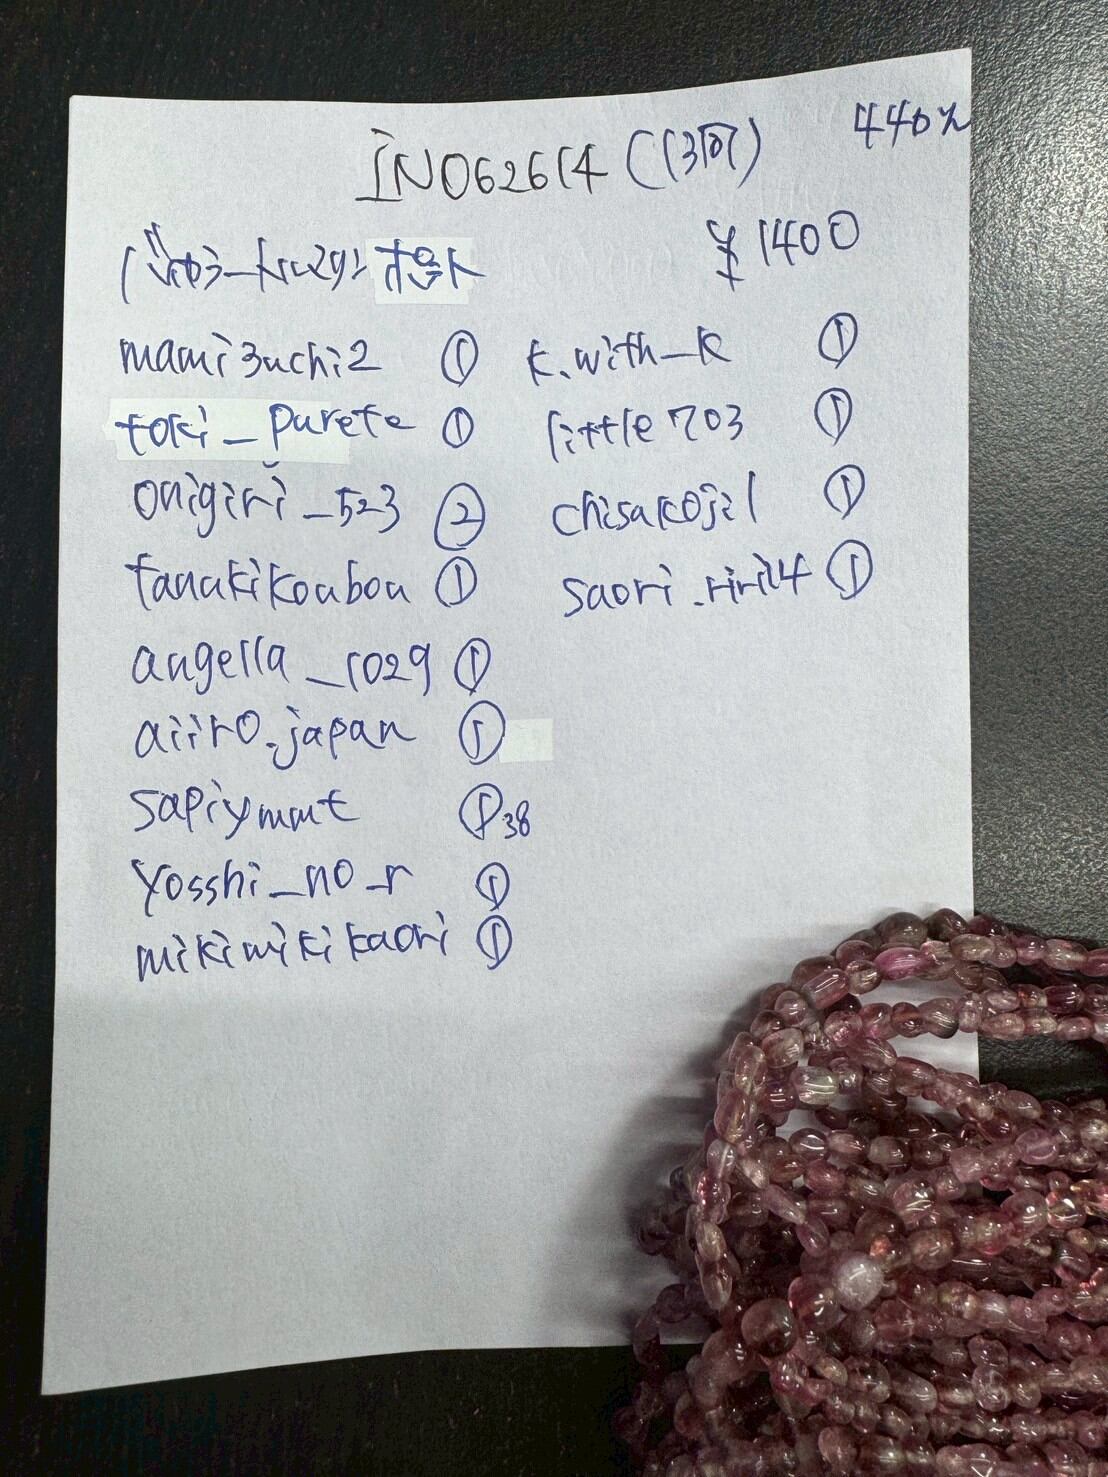 440%
INO62614 (13回)
¥1400
mami3uchi2 ①
toki_purete ①
onigiri_523 ②
tanukikoubou ①
angella_1029 ①
aiiro.japan ①
sapiymmt ① 38
yosshi_no_r ①
mikimikikaori ①
k.with_k ①
little703 ①
chisakoji1 ①
saori.riri14 ①